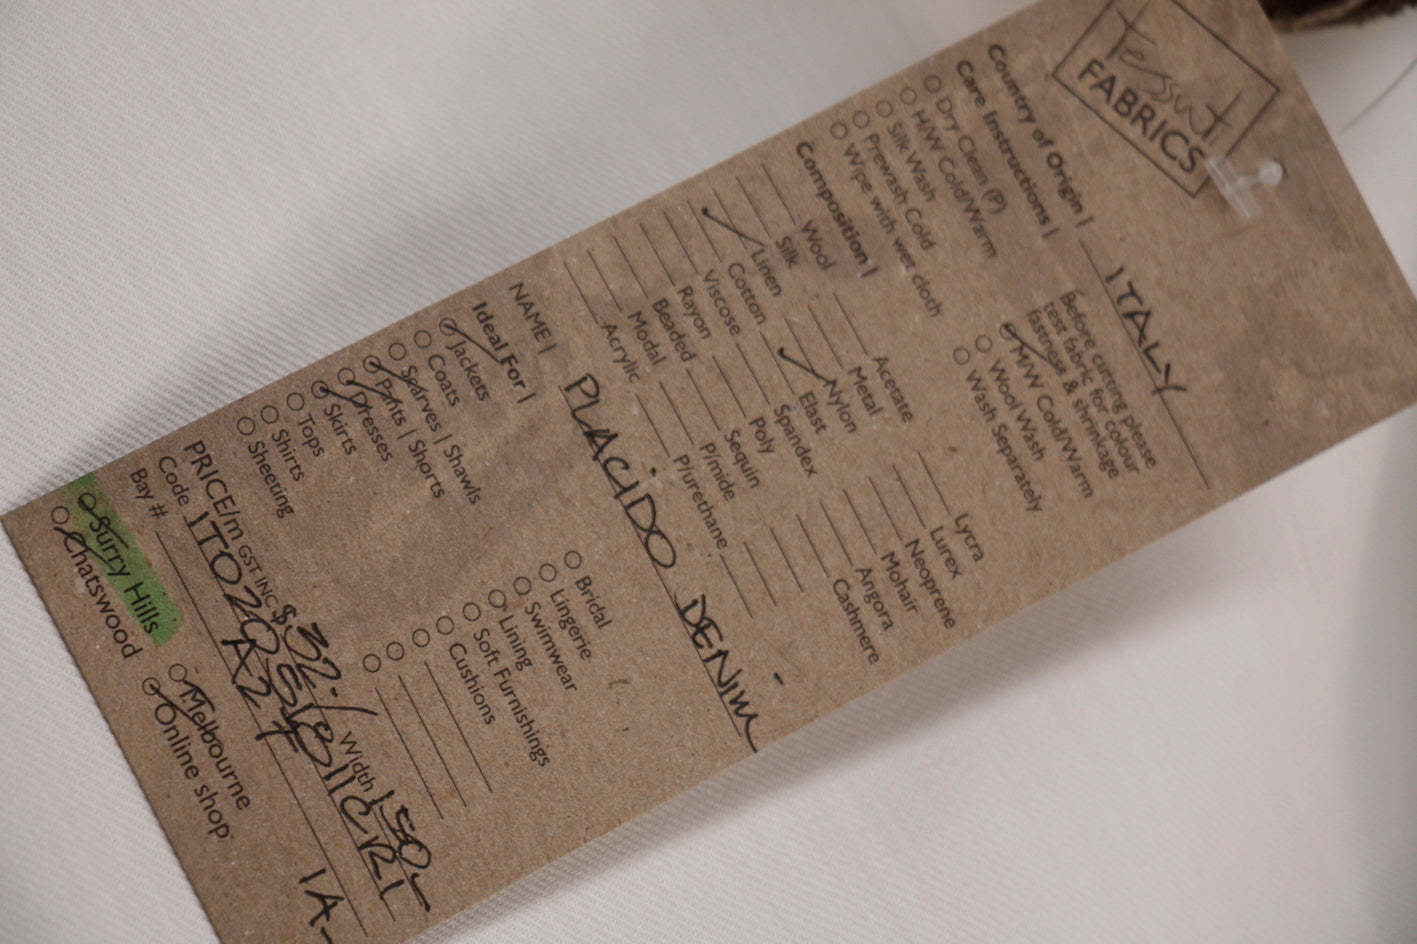 Tessuti
FABRICS
Country of Origin | ITALY
Care Instructions | Before cutting please
test fabric for colour
fastness & shrinkage
Dry Clean (P)
H/W Cold/Warm
Silk Wash
Prewash Cold
Wipe with wet cloth
M/W Cold/Warm
Wool Wash
Wash Separately
Composition |
Wool
Silk
Linen
Cotton
Viscose
Rayon
Beaded
Modal
Acrylic
Acetate
Metal
Nylon
Elast
Spandex
Poly
Sequin
P/mide
P/urethane
Lycra
Lurex
Neoprene
Mohair
Angora
Cashmere
NAME | PLACIDO DENIM
Ideal For |
Jackets
Coats
Scarves | Shawls
Pants | Shorts
Dresses
Skirts
Tops
Shirts
Sheeting
Bridal
Lingerie
Swimwear
Lining
Soft Furnishings
Cushions
PRICE/m GST INC $32.- Width 150-
Code
Bay #
Surry Hills
Chatswood
Melbourne
Online shop